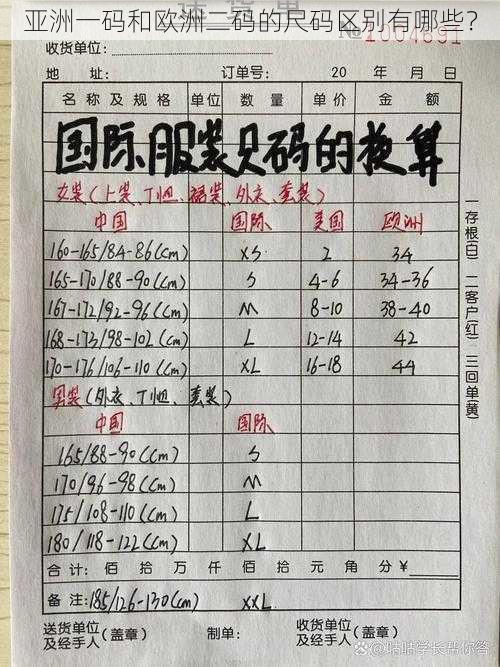 亚洲一码和欧洲二码的尺码区别有哪些？
收货单位：
№2004691
地 址： 订单号： 20 年 月 日
名 称 及 规 格 单位 数 量 单 价 金 额
国际服装尺码的换算
女装（上装、T恤、裙装、外衣、套装）
中国 国际 美国 欧洲
160-165/84-86(cm) XS 2 34
165-170/88-90(cm) S 4-6 34-36
167-172/92-96(cm) M 8-10 38-40
168-173/98-102(cm) L 12-14 42
170-176/106-110(cm) XL 16-18 44
男装（外衣、T恤、套装）
中国 国际
165/88-90(cm) S
170/96-98(cm) M
175/108-110(cm) L
180/118-122(cm) XL
合 计： 佰 拾 万 仟 佰 拾 元 角 分 ¥
备 注：185/126-130(cm) XXL
送货单位及经手人（盖章） 收货单位及经手人（盖章）
一存根(白) 二客户(红) 三回单(黄)